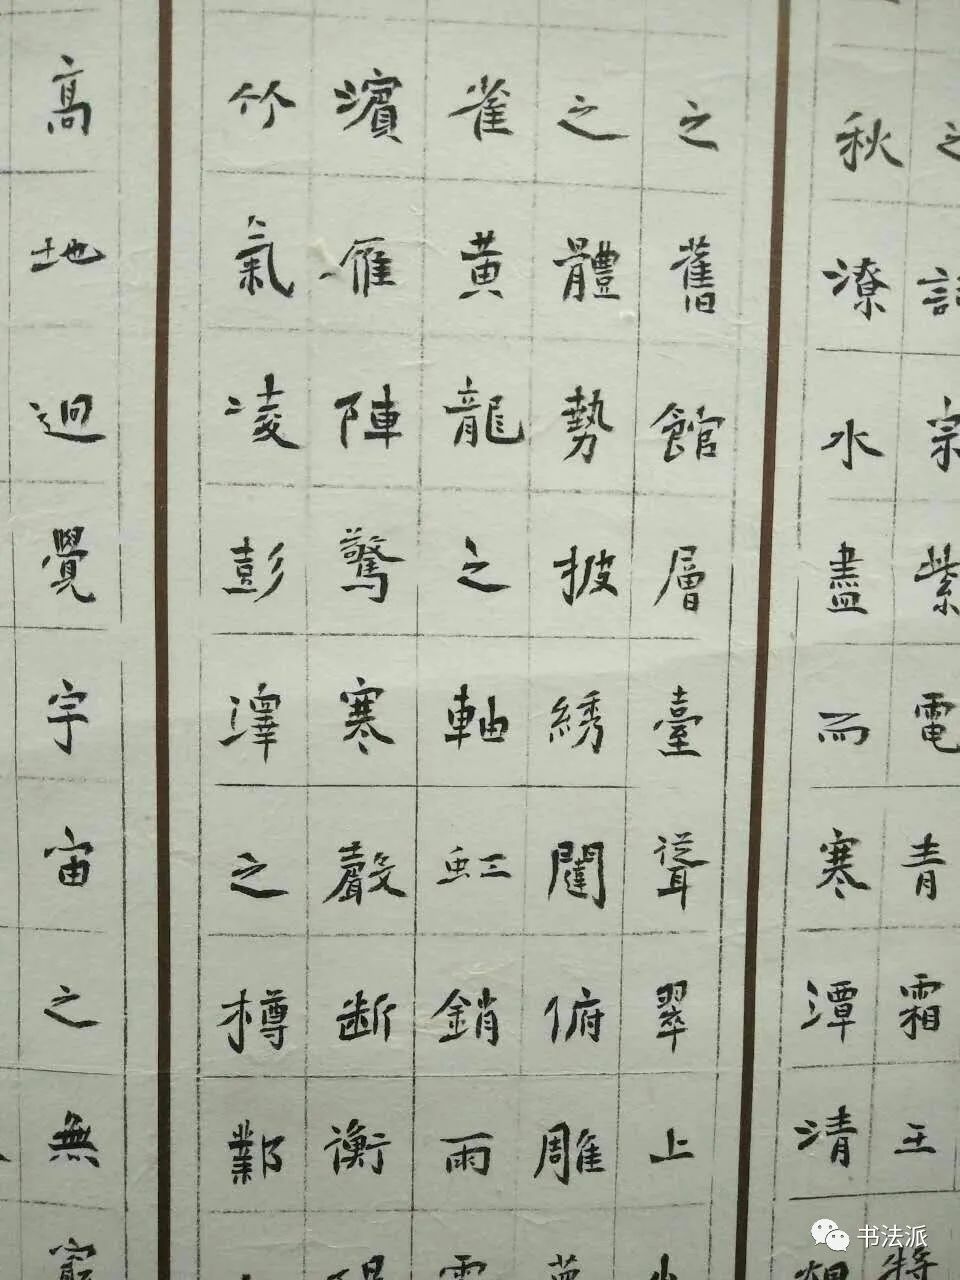 之詞宗紫電青霜王將
秋潦水盡而寒潭清
之舊館層臺聳翠上
之體勢披綉闥俯雕
雀黃龍之軸虹銷雨
濱雁陣驚寒聲断衡陽
竹氣凌彭澤之樽鄴
高地迥覺宇宙之無窮
书法派